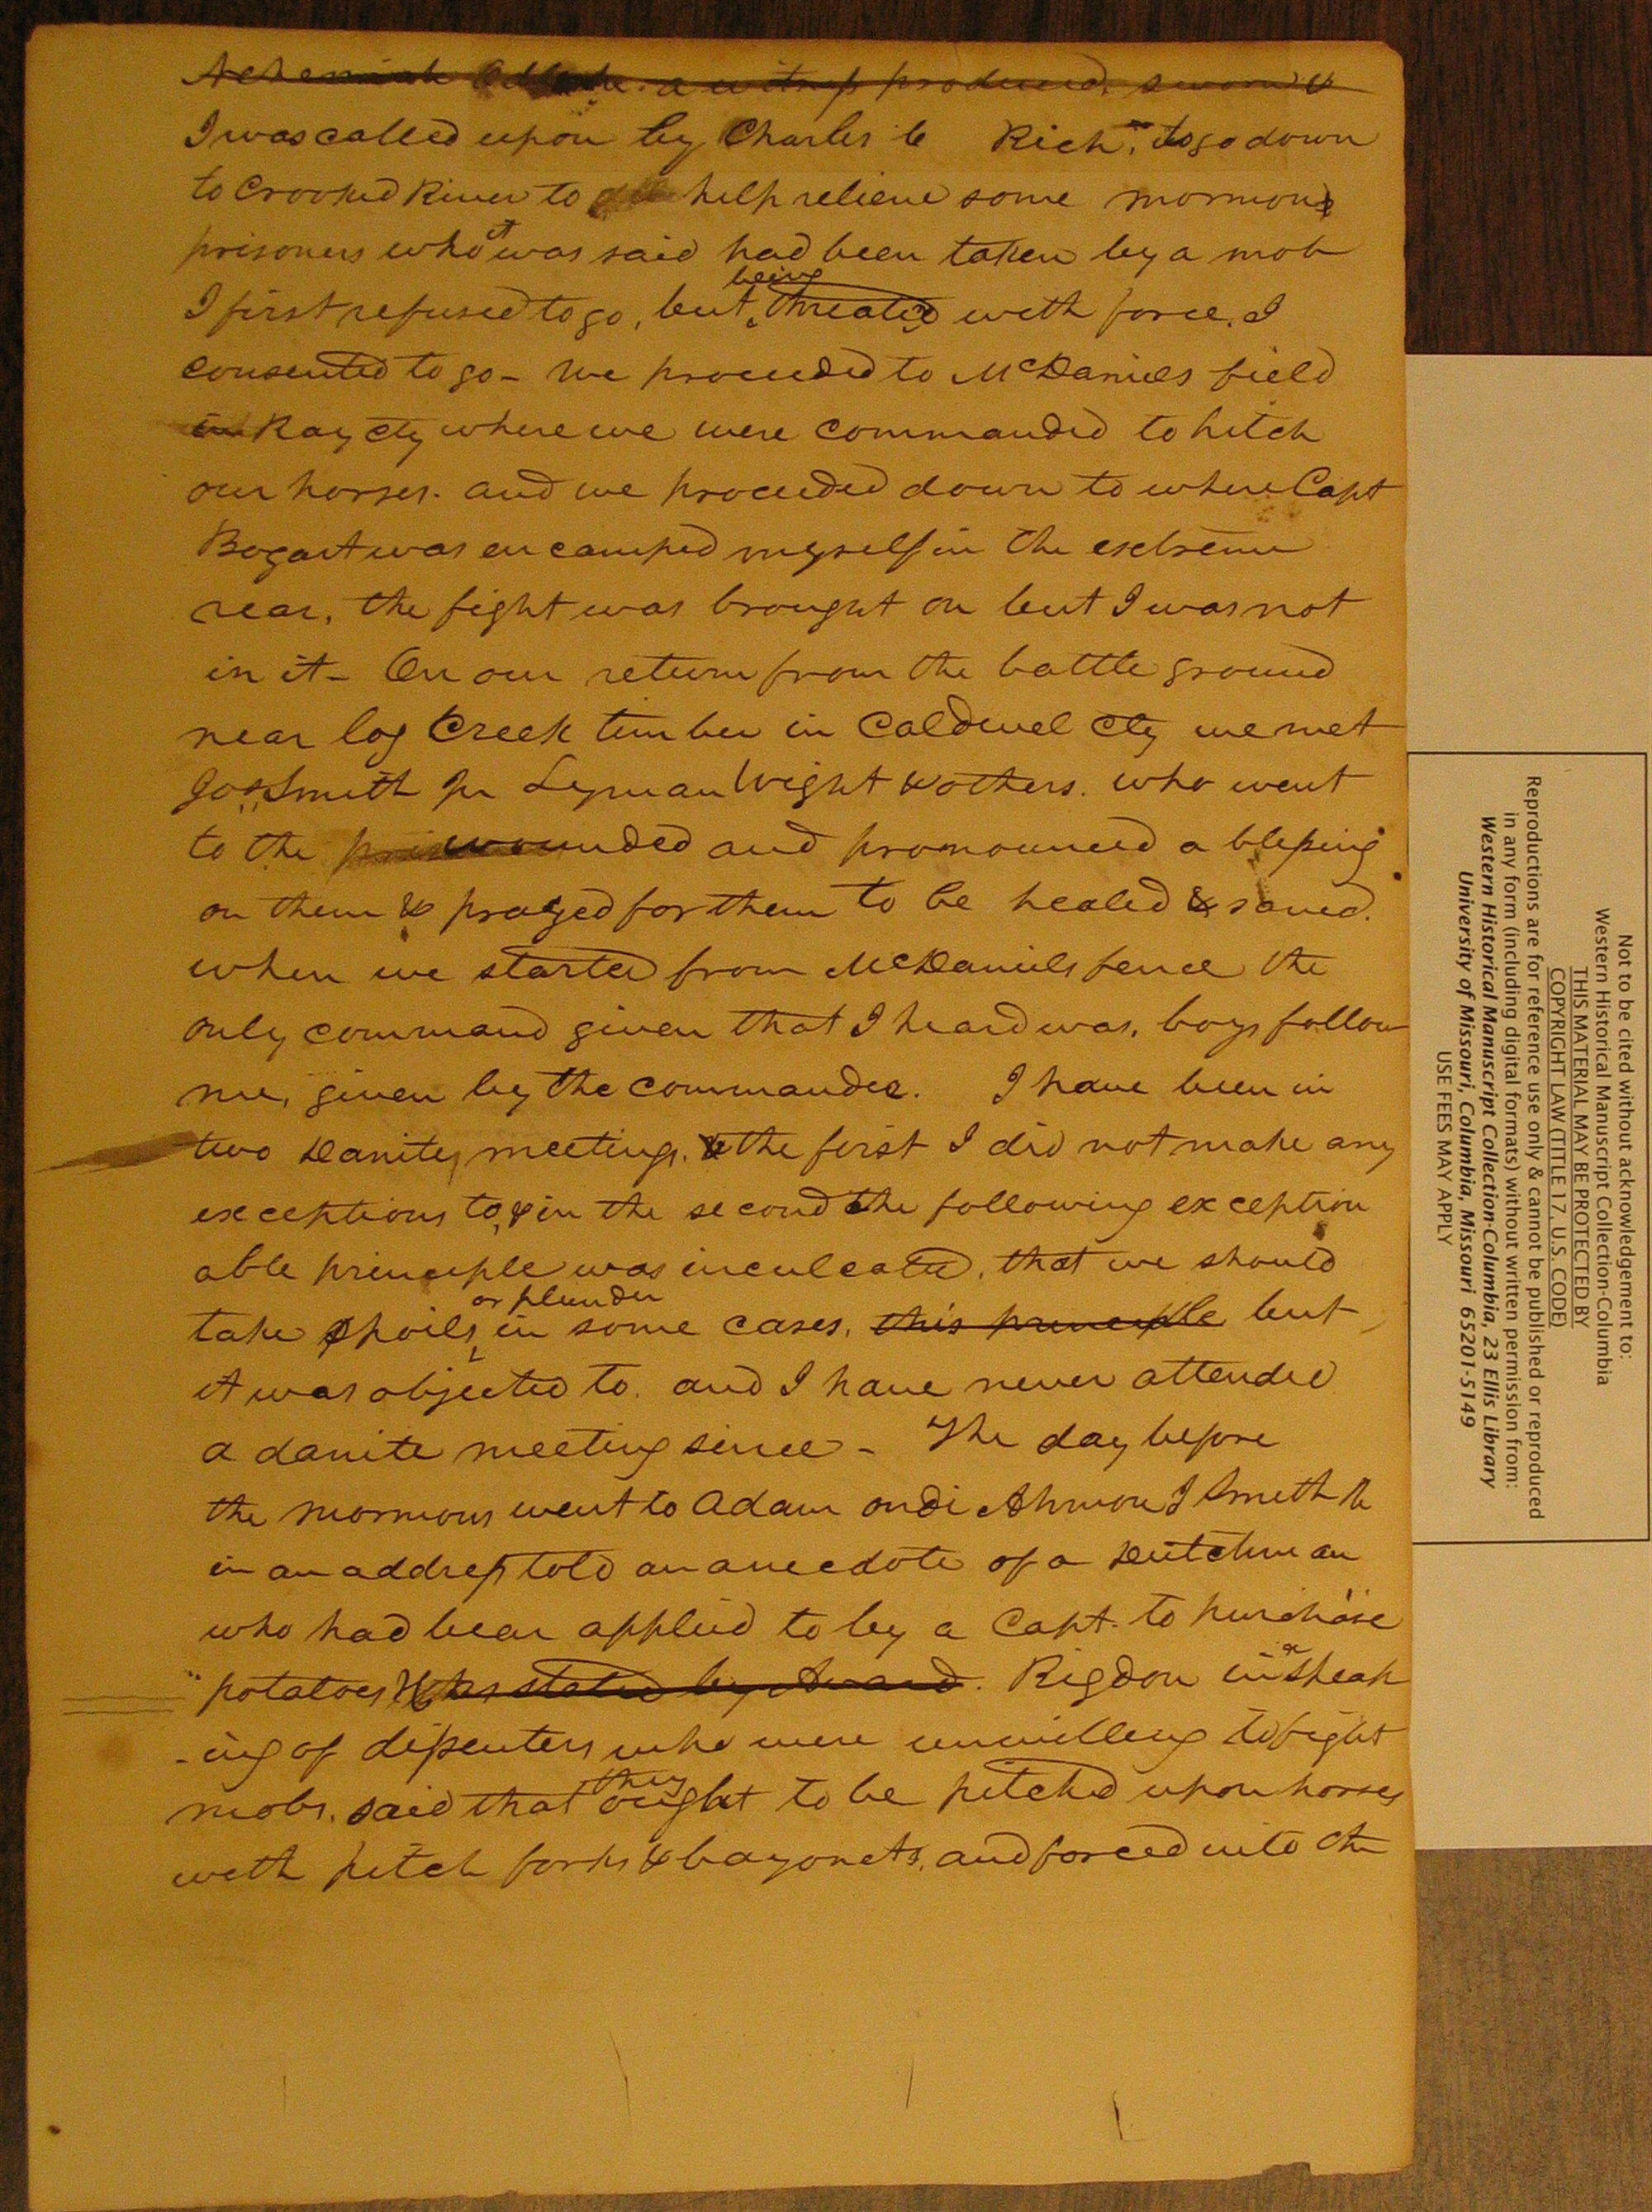 Nehemiah Odle. a witness produced, sworn &
I was called upon by Charles C Rich, to go down
to Crooked River to help relieve some mormons
prisoners who it was said had been taken by a mob
I first refused to go, but being threated with force, I
consented to go - We proceeded to McDaniels field
in Ray cty where we were commanded to hitch
our horses. and we proceeded down to where Capt
Bogart was encamped myself in the extreme
rear, the fight was brought on but I was not
in it - On our return from the battle ground
near log Creek timber in Caldwel cty we met
Jos Smith Jr Lyman Wight & others. who went
to the wounded and pronounced a blessing
on them & prayed for them to be healed & saved.
when we started from McDaniels fence the
only command given that I heard was, boys follow
me, given by the commander. I have been in
two Danite meetings, the first I did not make any
exceptions to, & in the second the following exception
able principle was inculcated, that we should
take spoils or plunder in some cases, this principle but
it was objected to. and I have never attended
a danite meeting since - The day before
the mormons went to Adam ondi Ahmon J Smith Jr
in an address told an anecdote of a Dutchman
who had bean applied to by a Capt. to purchase
potatoes &c as stated by Avard. Rigdon in speak
-ing of dissenters who were unwilling to fight
mobs, said that they ought to be pitched upon horses
with pitch forks & bayonets, and forced into the
Not to be cited without acknowledgement to:
Western Historical Manuscript Collection-Columbia
THIS MATERIAL MAY BE PROTECTED BY
COPYRIGHT LAW (TITLE 17, U.S. CODE)
Reproductions are for reference use only & cannot be published or reproduced
in any form (including digital formats) without written permission from:
Western Historical Manuscript Collection-Columbia, 23 Ellis Library
University of Missouri, Columbia, Missouri 65201-5149
USE FEES MAY APPLY